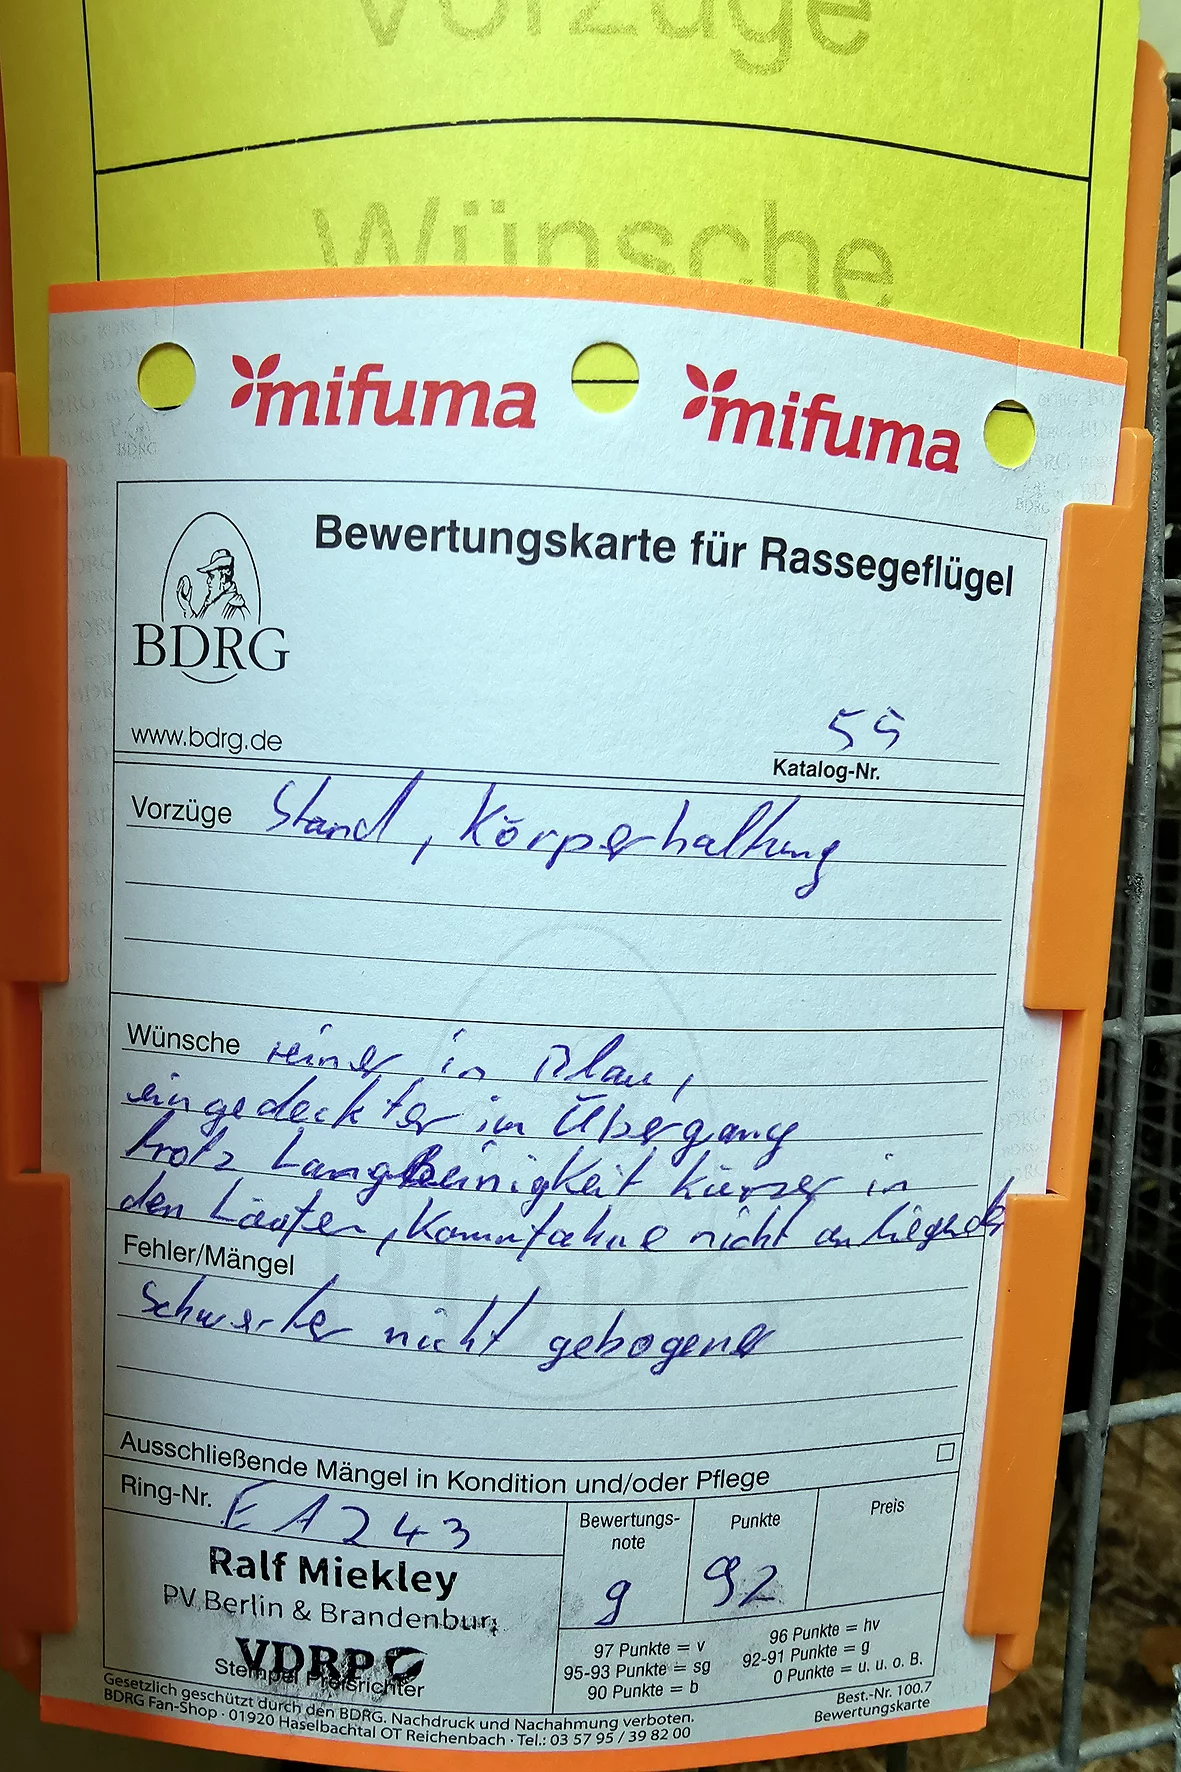 Vorzüge
Wünsche
mifuma mifuma
Bewertungskarte für Rassegeflügel
BDRG
www.bdrg.de
55
Katalog-Nr.
Vorzüge Stand, Körperhaltung
Wünsche reiner in Blau,
eingedeckter im Übergang
trotz Langbeinigkeit kürzer in
den Läufen, Kammfahne nicht anliegender
Fehler/Mängel
Schwerter nicht gebogener
Ausschließende Mängel in Kondition und/oder Pflege
Ring-Nr. EA243
Bewertungs-
note
g
Punkte
92
Preis
Ralf Miekley
PV Berlin & Brandenburg
VDRP
Stempel Preisrichter
97 Punkte = v
95-93 Punkte = sg
90 Punkte = b
96 Punkte = hv
92-91 Punkte = g
0 Punkte = u. u. o. B.
Gesetzlich geschützt durch den BDRG. Nachdruck und Nachahmung verboten.
BDRG Fan-Shop · 01920 Haselbachtal OT Reichenbach · Tel.: 03 57 95 / 39 82 00
Best.-Nr. 100.7
Bewertungskarte